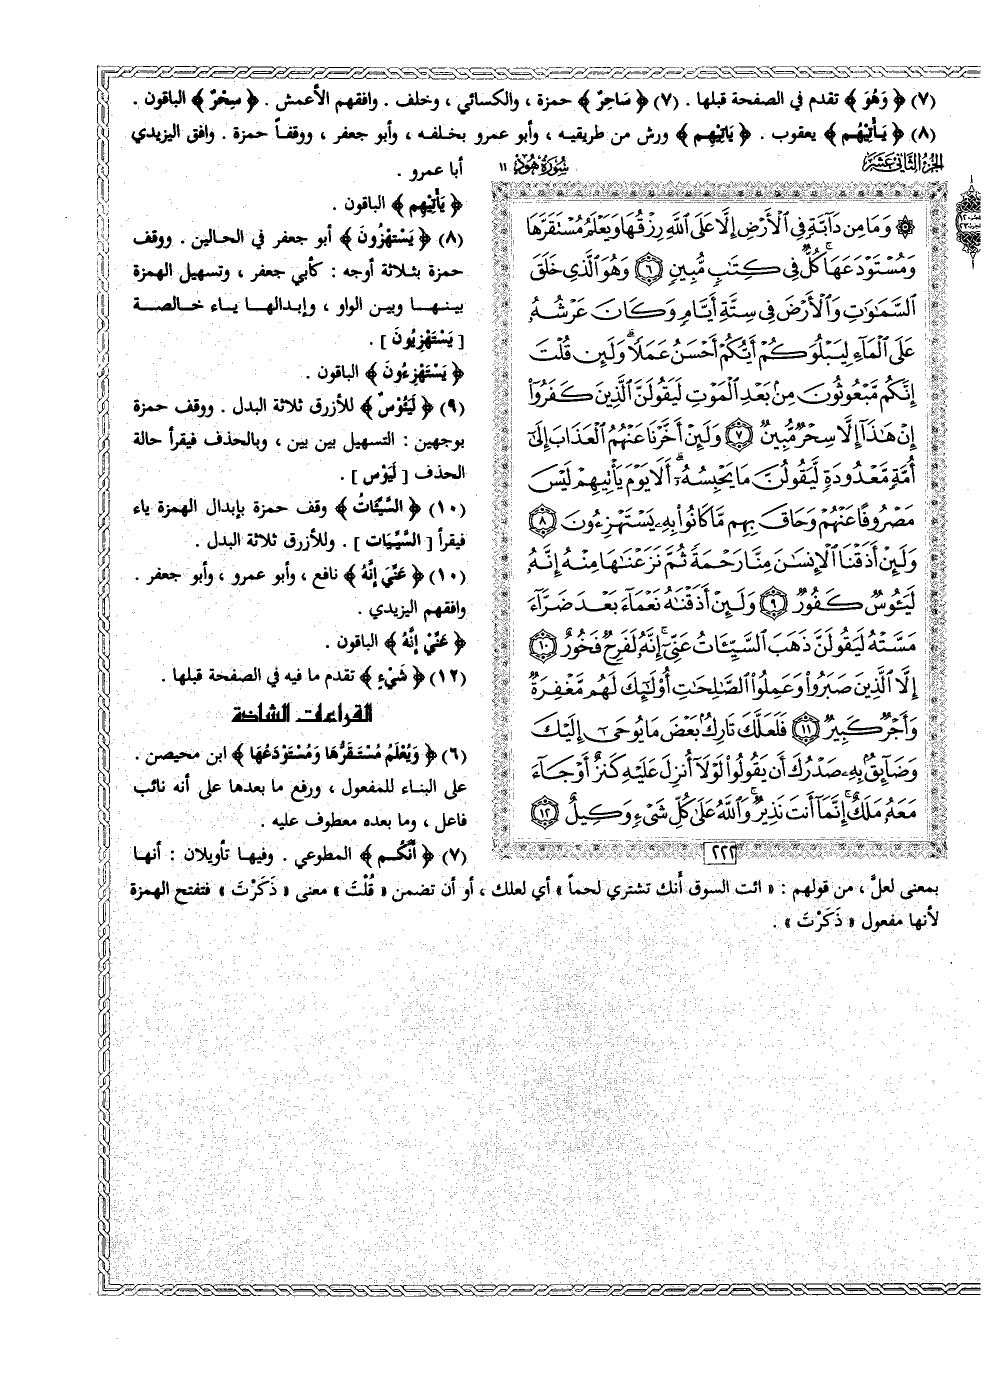 (٧) ﴿ وَهُوَ ﴾ تقدم في الصفحة قبلها . (٧) ﴿ سَاحِرٌ ﴾ حمزة ، والكسائي ، وخلف . وافقهم الأعمش . ﴿ سِحْرٌ ﴾ الباقون .
(٨) ﴿ يَأْتِيهُم ﴾ يعقوب . ﴿ يَاتِيهِم ﴾ ورش من طريقيه ، وأبو عمرو بخلفه ، وأبو جعفر ، ووقفاً حمزة . وافق اليزيدي
أبا عمرو .
﴿ يَأْتِيهِم ﴾ الباقون .
(٨) ﴿ يَسْتَهْزُونَ ﴾ أبو جعفر في الحالين . ووقف
حمزة بثلاثة أوجه : كأبي جعفر ، وتسهيل الهمزة
بينها وبين الواو ، وإبدالها ياء خالصة
[ يَسْتَهْزِيُونَ ] .
﴿ يَسْتَهْزِءُونَ ﴾ الباقون .
(٩) ﴿ لَيَئُوسٌ ﴾ للأزرق ثلاثة البدل . ووقف حمزة
بوجهين : التسهيل بين بين ، وبالحذف فيقرأ حالة
الحذف [ لَيَوْس ] .
(١٠) ﴿ السَّيِّئَاتُ ﴾ وقف حمزة بإبدال الهمزة ياء
فيقرأ [ السَّيِّيَات ] . وللأزرق ثلاثة البدل .
(١٠) ﴿ عَنِّيَ إِنَّهُ ﴾ نافع ، وأبو عمرو ، وأبو جعفر .
وافقهم اليزيدي .
﴿ عَنِّيْ إِنَّهُ ﴾ الباقون .
(١٢) ﴿ شَيْءٍ ﴾ تقدم ما فيه في الصفحة قبلها .
القراءات الشاذة
(٦) ﴿ وَيُعْلَمُ مُسْتَقَرُّهَا وَمُسْتَوْدَعُهَا ﴾ ابن محيصن .
على البناء للمفعول ، ورفع ما بعدها على أنه نائب
فاعل ، وما بعده معطوف عليه .
(٧) ﴿ أَنَّكُم ﴾ المطوعي . وفيها تأويلان : أنها
الجزء الثاني عشر
سورة هود ١١
۞ وَمَا مِن دَآبَّةٍ فِي ٱلْأَرْضِ إِلَّا عَلَى ٱللَّهِ رِزْقُهَا وَيَعْلَمُ مُسْتَقَرَّهَا
وَمُسْتَوْدَعَهَا كُلٌّ فِي كِتَٰبٍ مُّبِينٍ ٦ وَهُوَ ٱلَّذِي خَلَقَ
ٱلسَّمَٰوَٰتِ وَٱلْأَرْضَ فِي سِتَّةِ أَيَّامٍ وَكَانَ عَرْشُهُۥ
عَلَى ٱلْمَآءِ لِيَبْلُوَكُمْ أَيُّكُمْ أَحْسَنُ عَمَلًا وَلَئِن قُلْتَ
إِنَّكُم مَّبْعُوثُونَ مِنۢ بَعْدِ ٱلْمَوْتِ لَيَقُولَنَّ ٱلَّذِينَ كَفَرُوٓا۟
إِنْ هَٰذَآ إِلَّا سِحْرٌ مُّبِينٌ ٧ وَلَئِنْ أَخَّرْنَا عَنْهُمُ ٱلْعَذَابَ إِلَىٰٓ
أُمَّةٍ مَّعْدُودَةٍ لَّيَقُولُنَّ مَا يَحْبِسُهُۥٓ أَلَا يَوْمَ يَأْتِيهِمْ لَيْسَ
مَصْرُوفًا عَنْهُمْ وَحَاقَ بِهِم مَّا كَانُوا۟ بِهِۦ يَسْتَهْزِءُونَ ٨
وَلَئِنْ أَذَقْنَا ٱلْإِنسَٰنَ مِنَّا رَحْمَةً ثُمَّ نَزَعْنَٰهَا مِنْهُ إِنَّهُۥ
لَيَـُٔوسٌ كَفُورٌ ٩ وَلَئِنْ أَذَقْنَٰهُ نَعْمَآءَ بَعْدَ ضَرَّآءَ
مَسَّتْهُ لَيَقُولَنَّ ذَهَبَ ٱلسَّيِّـَٔاتُ عَنِّيٓ إِنَّهُۥ لَفَرِحٌ فَخُورٌ ١٠
إِلَّا ٱلَّذِينَ صَبَرُوا۟ وَعَمِلُوا۟ ٱلصَّٰلِحَٰتِ أُو۟لَٰٓئِكَ لَهُم مَّغْفِرَةٌ
وَأَجْرٌ كَبِيرٌ ١١ فَلَعَلَّكَ تَارِكٌۢ بَعْضَ مَا يُوحَىٰٓ إِلَيْكَ
وَضَآئِقٌۢ بِهِۦ صَدْرُكَ أَن يَقُولُوا۟ لَوْلَآ أُنزِلَ عَلَيْهِ كَنزٌ أَوْ جَآءَ
مَعَهُۥ مَلَكٌ إِنَّمَآ أَنتَ نَذِيرٌ وَٱللَّهُ عَلَىٰ كُلِّ شَيْءٍ وَكِيلٌ ١٢
٢٢٢
بمعنى لعلَّ ، من قولهم : « ائت السوق أَنك تشتري لحماً » أي لعلك ، أو أن تضمن « قُلْتَ » معنى « ذَكَرْتَ » فتفتح الهمزة
لأنها مفعول « ذَكَرْتَ » .